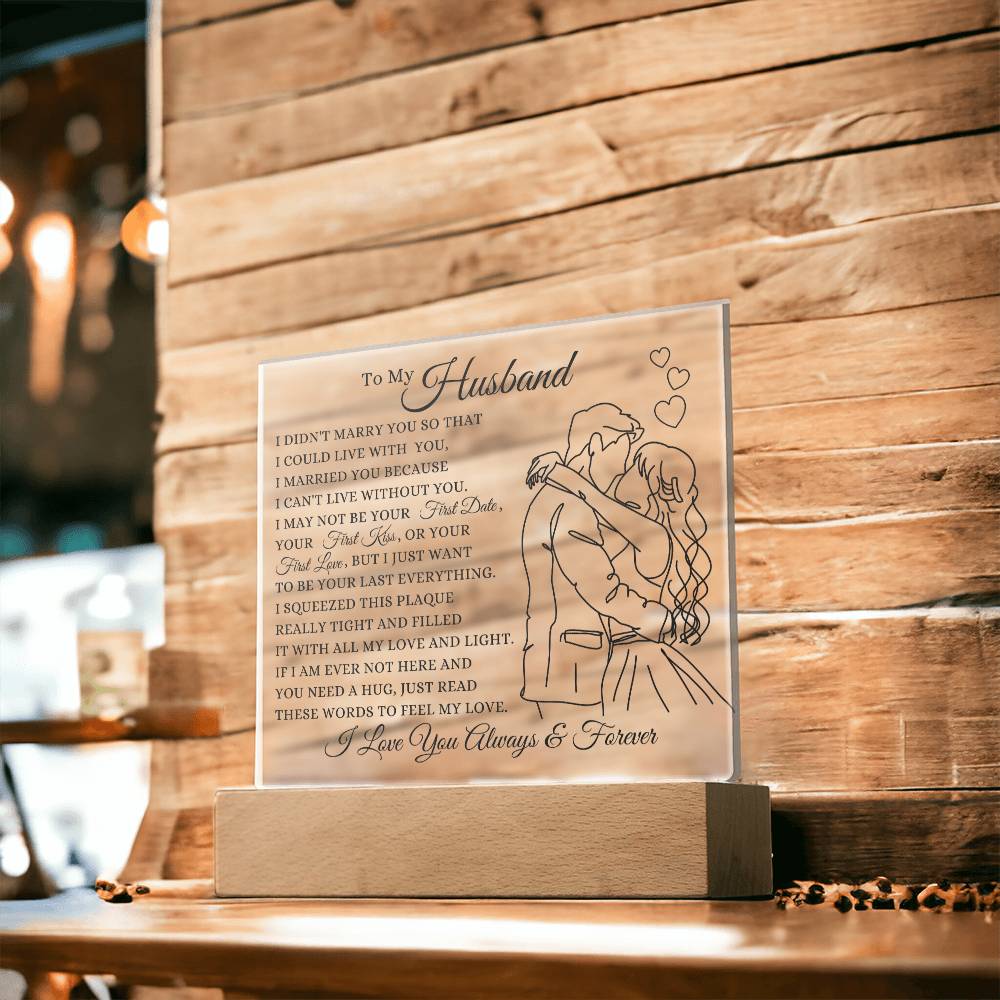 To My Husband
I DIDN'T MARRY YOU SO THAT
I COULD LIVE WITH YOU,
I MARRIED YOU BECAUSE
I CAN'T LIVE WITHOUT YOU.
I MAY NOT BE YOUR First Date,
YOUR First Kiss, OR YOUR
First Love, BUT I JUST WANT
TO BE YOUR LAST EVERYTHING.
I SQUEEZED THIS PLAQUE
REALLY TIGHT AND FILLED
IT WITH ALL MY LOVE AND LIGHT.
IF I AM EVER NOT HERE AND
YOU NEED A HUG, JUST READ
THESE WORDS TO FEEL MY LOVE.
I Love You Always & Forever